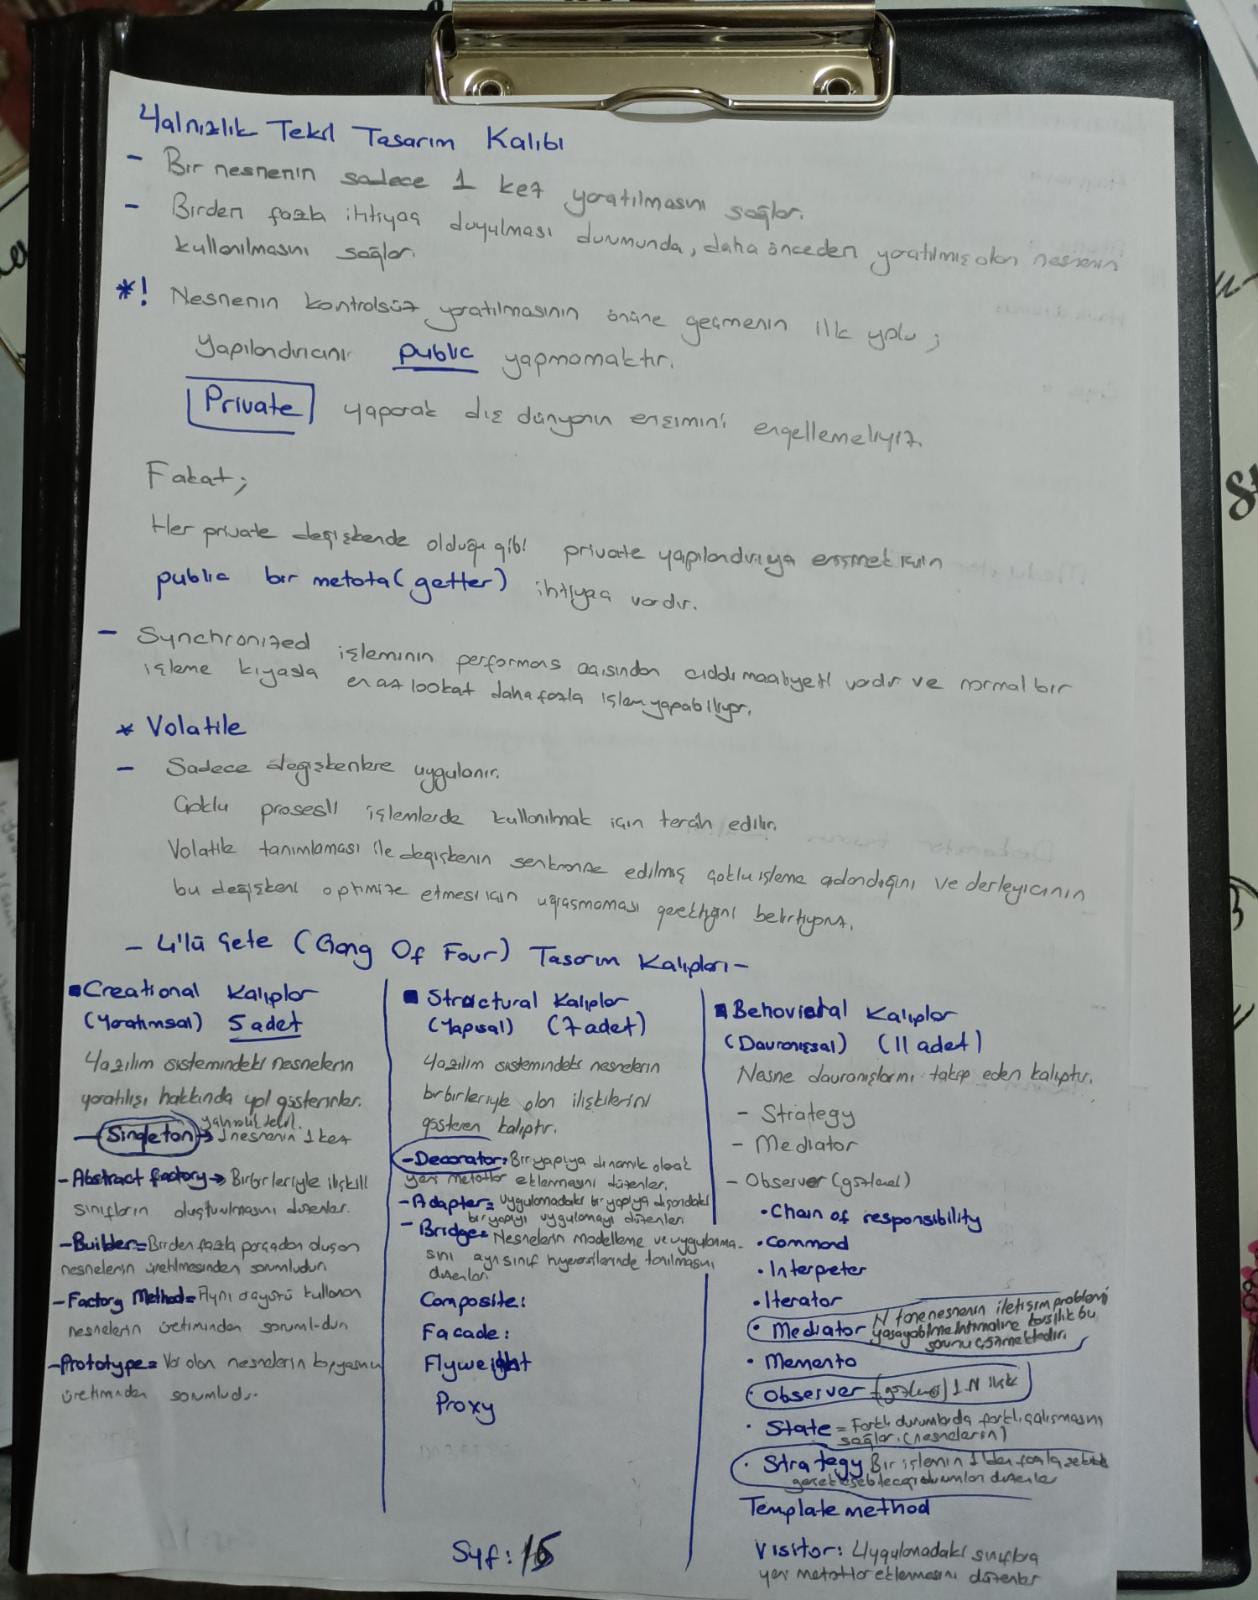 Yalnızlık Tekil Tasarım Kalıbı
- Bir nesnenin sadece 1 kez yaratılmasını sağlar.
- Birden fazla ihtiyaç duyulması durumunda, daha önceden yaratılmış olan nesnenin
kullanılmasını sağlar.
*! Nesnenin kontrolsüz yaratılmasının önüne geçmenin ilk yolu ;
yapılandırıcını public yapmamaktır.
Private yaparak dış dünyanın erişimini engellemeliyiz.
Fakat;
Her private değişkende olduğu gibi private yapılandırıcıya erişmek için
public bir metota (getter) ihtiyaç vardır.
- Synchronized işleminin performans açısından ciddi maaliyeti vardır ve normal bir
işleme kıyasla en az 100 kat daha fazla işlem yapabiliyor.
* Volatile
- Sadece değişkenlere uygulanır.
Çoklu prosesli işlemlerde kullanılmak için tercih edilir.
Volatile tanımlaması ile değişkenin senkronize edilmiş çoklu işleme adandığını ve derleyicinin
bu değişkeni optimize etmesi için uğraşmaması gerektiğini belirtiyoruz.
- 4'lü Çete (Gang Of Four) Tasarım Kalıpları -
▪ Creational Kalıplar
(Yaratımsal) 5 adet
Yazılım sistemindeki nesnelerin
yaratılışı hakkında yol gösterirler.
yalnızlık tekil.
- Singleton → 1 nesnenin 1 kez
- Abstract factory → Birbirleriyle ilişkili
sınıfların oluşturulmasını düzenler.
- Builder = Birden fazla parçadan oluşan
nesnelerin üretilmesinden sorumludur
- Factory Method = Aynı arayüzü kullanan
nesnelerin üretiminden sorumludur
- Prototype = Var olan nesnelerin kopyasının
üretiminden sorumludur.
▪ Structural Kalıplar
(Yapısal) (7 adet)
Yazılım sistemindeki nesnelerin
birbirleriyle olan ilişkilerini
gösteren kalıptır.
- Decorator: Bir yapıya dinamik olarak
yeni metotlar eklenmesini düzenler.
- Adapter = uygulamadaki bir yapıya dışarıdaki
bir yapıyı uygulamayı düzenler
- Bridge = Nesnelerin modelleme ve uygulanma-
sını ayrı sınıf hiyerarşilerinde tanılmasını
düzenler
Composite:
Facade:
Flyweight
Proxy
▪ Behavioral Kalıplar
(Davranışsal) (11 adet)
Nesne davranışlarını takip eden kalıptır.
- Strategy
- Mediator
- Observer (gözlemci)
• Chain of responsibility
• Command
• Interpreter
• Iterator
• Mediator N tane nesnenin iletişim problemi
yaşayabilme ihtimaline karşılık bu
sorunu çözmektedir.
• Memento
• Observer (gözlemci) 1-N ilişki
• State = Farklı durumlarda farklı çalışmasını
sağlar. (nesnelerin)
• Strategy Bir işlemin 1'den fazla şekilde
gerçekleşebileceği durumları düzenler
Template method
Visitor: Uygulamadaki sınıflara
yeni metotlar eklenmesini düzenler
Syf: 15